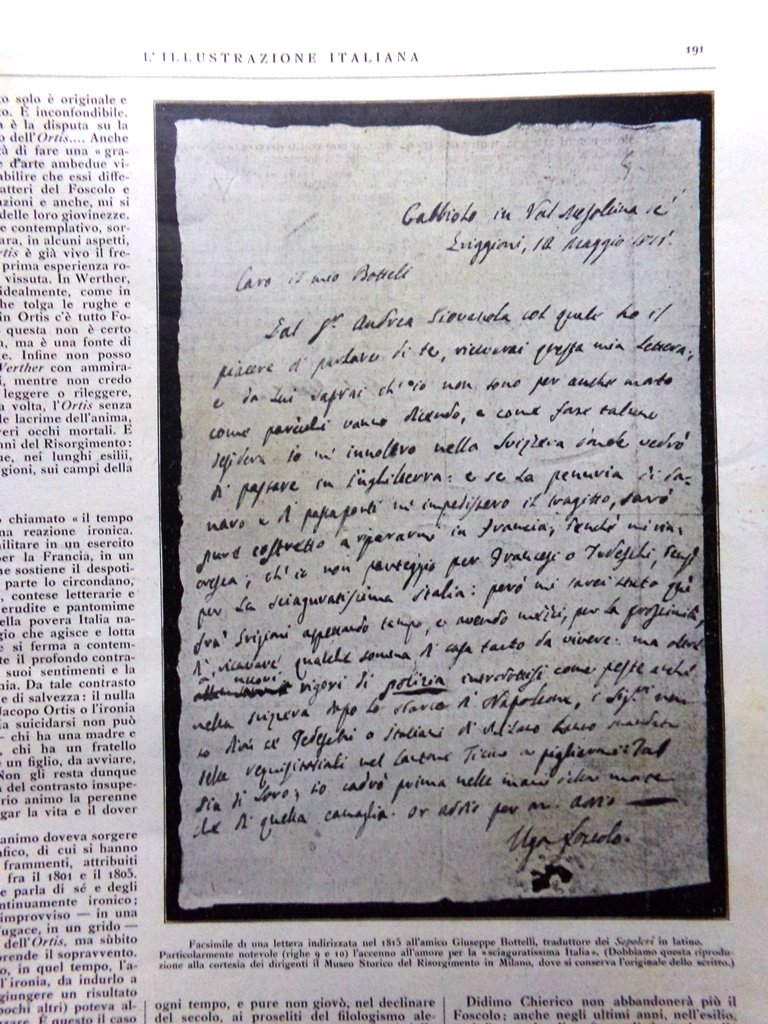 L'ILLUSTRAZIONE ITALIANA
191
to solo è originale e
co. È inconfondibile.
a è la disputa su la
o dell'Ortis.... Anche
tà di fare una « gra-
e d'arte ambedue vi-
abilire che essi diffe-
atteri del Foscolo e
azioni e anche, mi si
delle loro giovinezze.
e contemplativo, sor-
ara, in alcuni aspetti,
rtis è già vivo il fre-
prima esperienza ro-
vissuta. In Werther,
idealmente, come in
he tolga le rughe e
in Ortis c'è tutto Fo-
questa non è certo
n, ma è una fonte di
e. Infine non posso
Werther con ammira-
i, mentre non credo
leggere o rileggere,
a volta, l'Ortis senza
le lacrime dell'anima,
veri occhi mortali. E
nni del Risorgimento:
ne, nei lunghi esilii,
gioni, sui campi della
o chiamato « il tempo
na reazione ironica.
ilitare in un esercito
per la Francia, in un
he sostiene il despoti-
parte lo circondano,
contese letterarie e
erudite e pantomime
ella povera Italia na-
gio che agisce e lotta
e si ferma a contem-
te il profondo contra-
suoi sentimenti e la
nia. Da tale contrasto
e di salvezza: il nulla
Jacopo Ortis o l'ironia
ia suicidarsi non può
— chi ha una madre e
chi ha un fratello
un figlio, da avviare,
Non gli resta dunque
del contrasto insupe-
rio animo la perenne
gar la vita e il dover
animo doveva sorgere
fico, di cui si hanno
frammenti, attribuiti
fra il 1801 e il 1805.
e parla di sé e degli
ntinuamente ironico;
improvviso — in una
fugace, in un grido —
dell'Ortis, ma sùbito
rende il sopravvento.
o, in quel tempo, l'a-
d'Ironia, da indurlo a
giungere un risultato
pochi altri) poteva al-
zare. E questo il caso
Gabbiolo in Val Mesolcina ne'
Grigioni, 12 Maggio 1815.
Caro il mio Bottelli
Dal Sr. Andrea Giovanola col quale ho il
piacere di parlare di te, riceverai questa mia lettera;
e da lui saprai ch'io non sono per anche nato
come parecchi vanno dicendo, e come forse taluno
desidera. Io m'innoltro nella Svizzera donde vedrò
di passare in Inghilterra: e se la penuria di da-
naro e di passaporti m'impedissero il tragitto, sarò
pure costretto a ripararmi in Francia, benché
ch'io non parteggio per Francesi o Tedeschi, bensì
per la sciaguratissima Italia: però mi sarei stato quì
fra' Grigioni aspettando tempo, e avendo mezzi, per la prossimità,
di ricavare qualche somma di casa tanto da vivere: ma oltre
a' nuovi rigori di polizia introdottisi come peste anche
nella Svizzera dopo lo sbarco di Napoleone, i Sigri. non
so dire se Tedeschi o Italiani di Milano hanno mandate
delle requisitoriali nel Cantone Ticino a pigliarmi: Dal
dia di loro; io cadrò prima nelle mani della morte
che di quella canaglia. Or addio per ora. Addio
Ugo Foscolo.
Facsimile di una lettera indirizzata nel 1815 all'amico Giuseppe Bottelli, traduttore dei Sepolcri in latino.
Particolarmente notevole (righe 9 e 10) l'accenno all'amore per la «sciaguratissima Italia». (Dobbiamo questa riprodu-
zione alla cortesia dei dirigenti il Museo Storico del Risorgimento in Milano, dove si conserva l'originale dello scritto.)
ogni tempo, e pure non giovò, nel declinare
del secolo, ai proseliti del filologismo ale-
Didimo Chierico non abbandonerà più il
Foscolo; anche negli ultimi anni, nell'esilio,